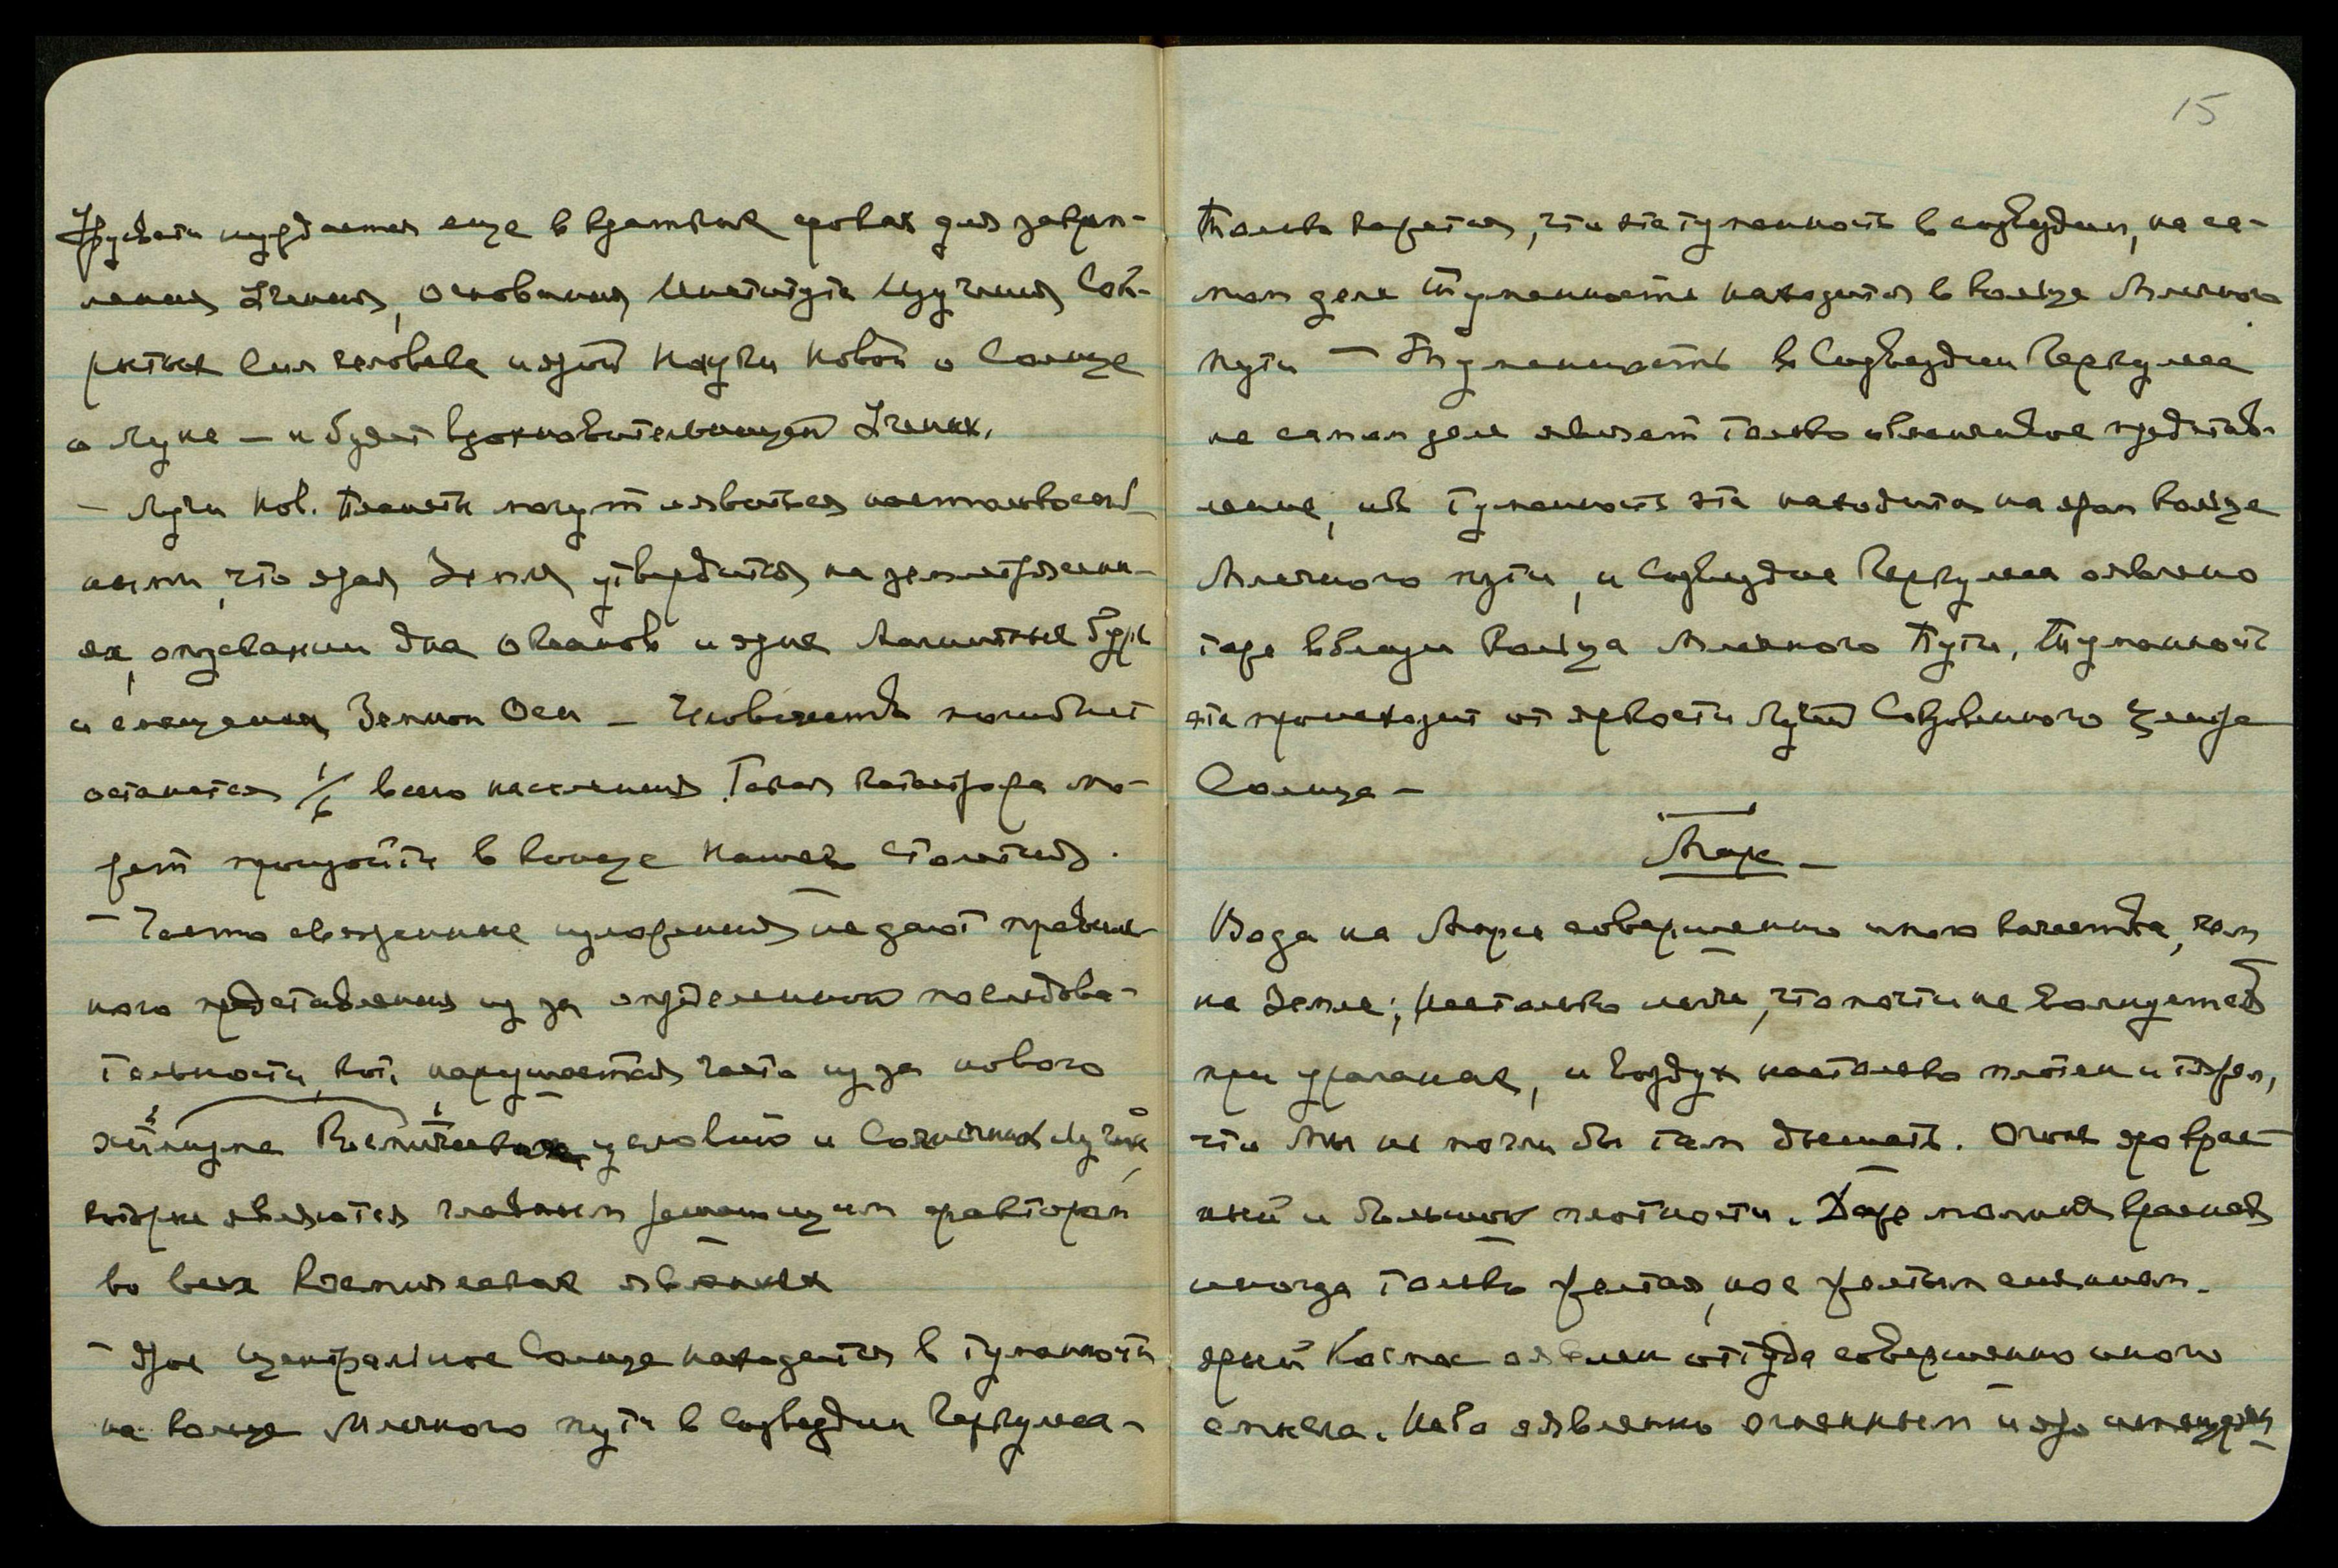 Урусвати нуждается еще в кратких словах для завер-
шения Учения, основания Института Изучения Сок-
рытых Сил человека и ярой Науки Новой о Солнце
о Луне — и будет вдохновительницей Учения.
— Лучи Нов. Планеты могут явиться настолько силь
ными, что ярая Земля утвердится на землетрясени-
ях, опускании дна океанов и ярые Магнитные Бури
и смещения Земной Оси — Человечество погибнет
останется 1/6 всего населения. Такая катастрофа мо-
жет произойти в конце нашего столетия.
— Часто связанные изложения не дают правиль-
ного представления из за определенной последова-
тельности, кот. нарушается часто из за нового
химизма Космических условий и Солнечных лучей,
которые являются главным решающим фактором
во всех Космических явлениях
— Ярое центральное Солнце находится в туманности
на кольце Млечного пути в созвездии Геркулеса —
15
Только кажется, что эта туманность в созвездии, на са-
мом деле Туманность находится в кольце Млечного
пути — Туманность в Созвездии Геркулеса
на самом деле являет только обманчивое представ-
ление, ибо туманность эта находится на яром кольце
Млечного пути, и Созвездие Геркулеса оявлено
тоже вблизи кольца Млечного Пути, Туманность
эта происходит от яркости Лучей Сокровенного Центра
Солнца —
Марс —
Вода на Марсе совершенно иного качества, чем
на Земле; Настолько легка, что почти не волнуется
при ураганах, и воздух настолько плотен и тяжел,
что Мы не могли бы там дышать. Огонь яро крас-
ный и большой плотности. Даже молния красная
иногда только желтая, но с желтым сиянием.
ярый Космос оявлен оттуда совершенно иного
смысла. Небо оявлено огненным и яро